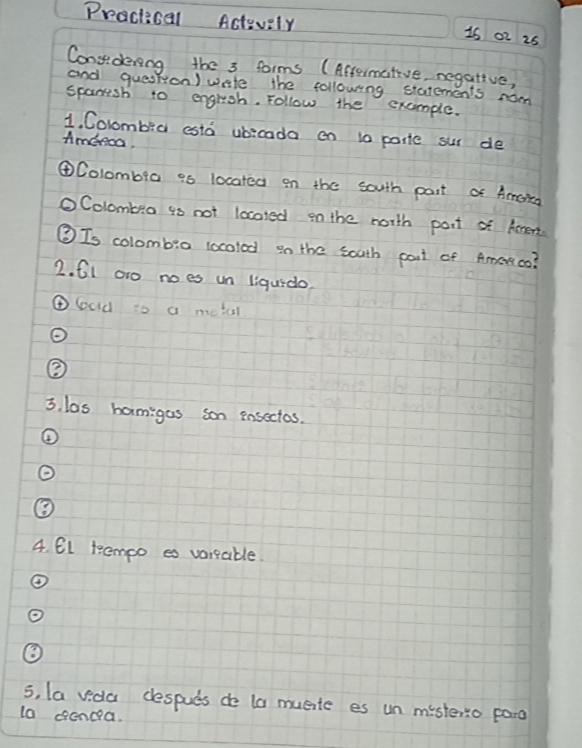 Practical Activity
16 02 26
Considering the 3 forms (Affirmative, negative,
and question) write the following statements from
Spanish to english. Follow the example.
1. Colombia está ubicada en la parte sur de
América.
⊕ Colombia is located in the south part of America
⊖ Colombia is not located in the north part of America
? Is colombia located in the south part of America?
2. El oro no es un liquido.
⊕ Gold is a metal
⊖
?
3. las hormigas son insectos.
⊕
⊖
?
4. El tiempo es variable.
⊕
⊖
?
5. la vida después de la muerte es un misterio para
la ciencia.